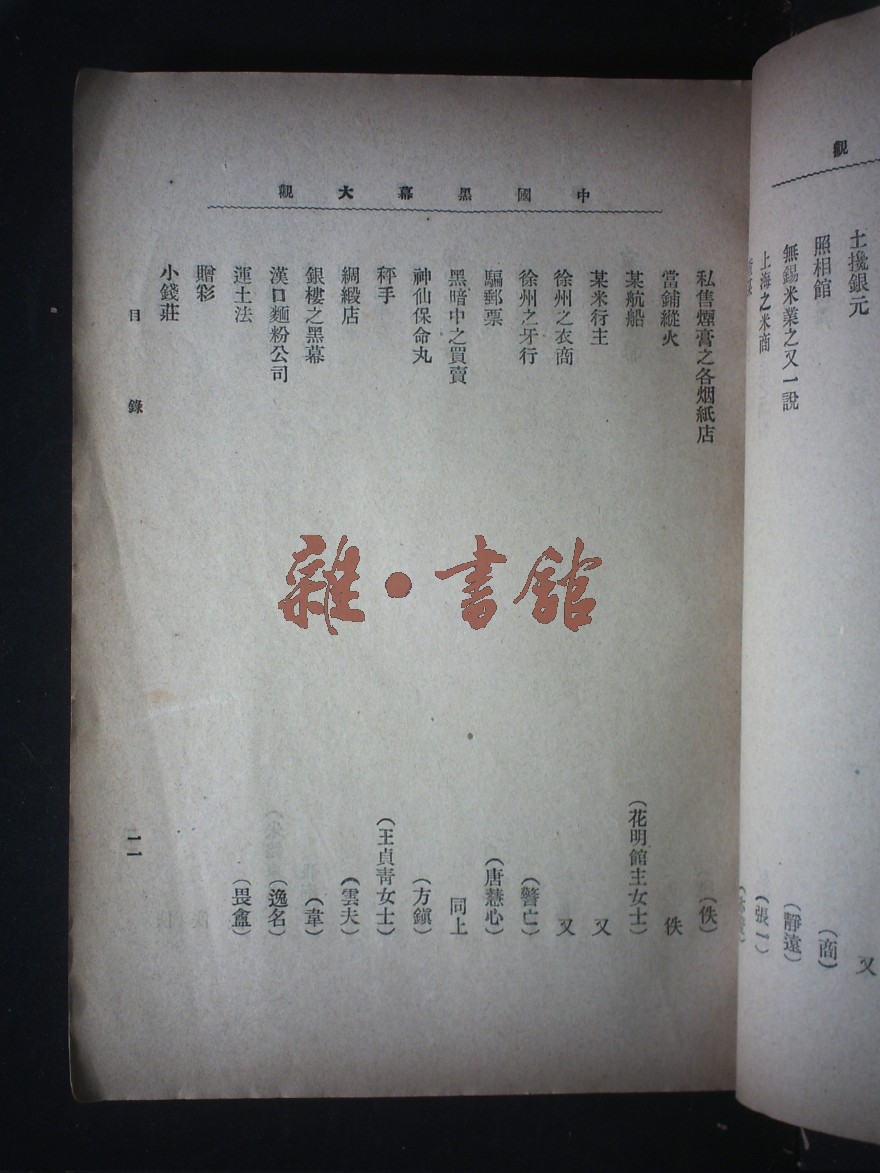 觀
土攙銀元 又
照相館 (商)
無錫米業之又一說 (靜遠)
上海之米商 (張一)
中國黑幕大觀
私售煙膏之各烟紙店 (佚)
當鋪縱火 佚
某航船 (花明館主女士)
某米行主 又
徐州之衣商 又
徐州之牙行 (警亡)
騙郵票 (唐慧心)
黑暗中之買賣 同上
神仙保命丸 (方鎭)
秤手 (王貞靑女士)
綢緞店 (雲夫)
銀樓之黑幕 (韋)
漢口麵粉公司 (逸名)
運土法 (畏盦)
贈彩
小錢莊
目錄
二
雜·書館